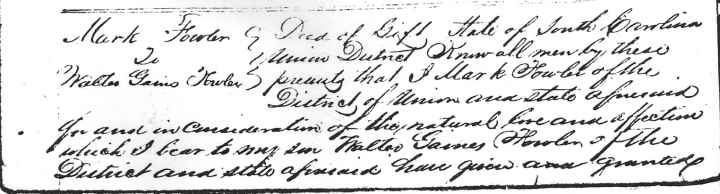 Mark Fowler } Deed of Gift State of South Carolina
To } Union District Know all men by these
Walter Gains Fowler } presents that I Mark Fowler of the
District of Union and state aforesaid
for and in consideration of the natural love and affection
which I bear to my son Walter Gaines Fowler of the
District and state aforesaid have given and granted